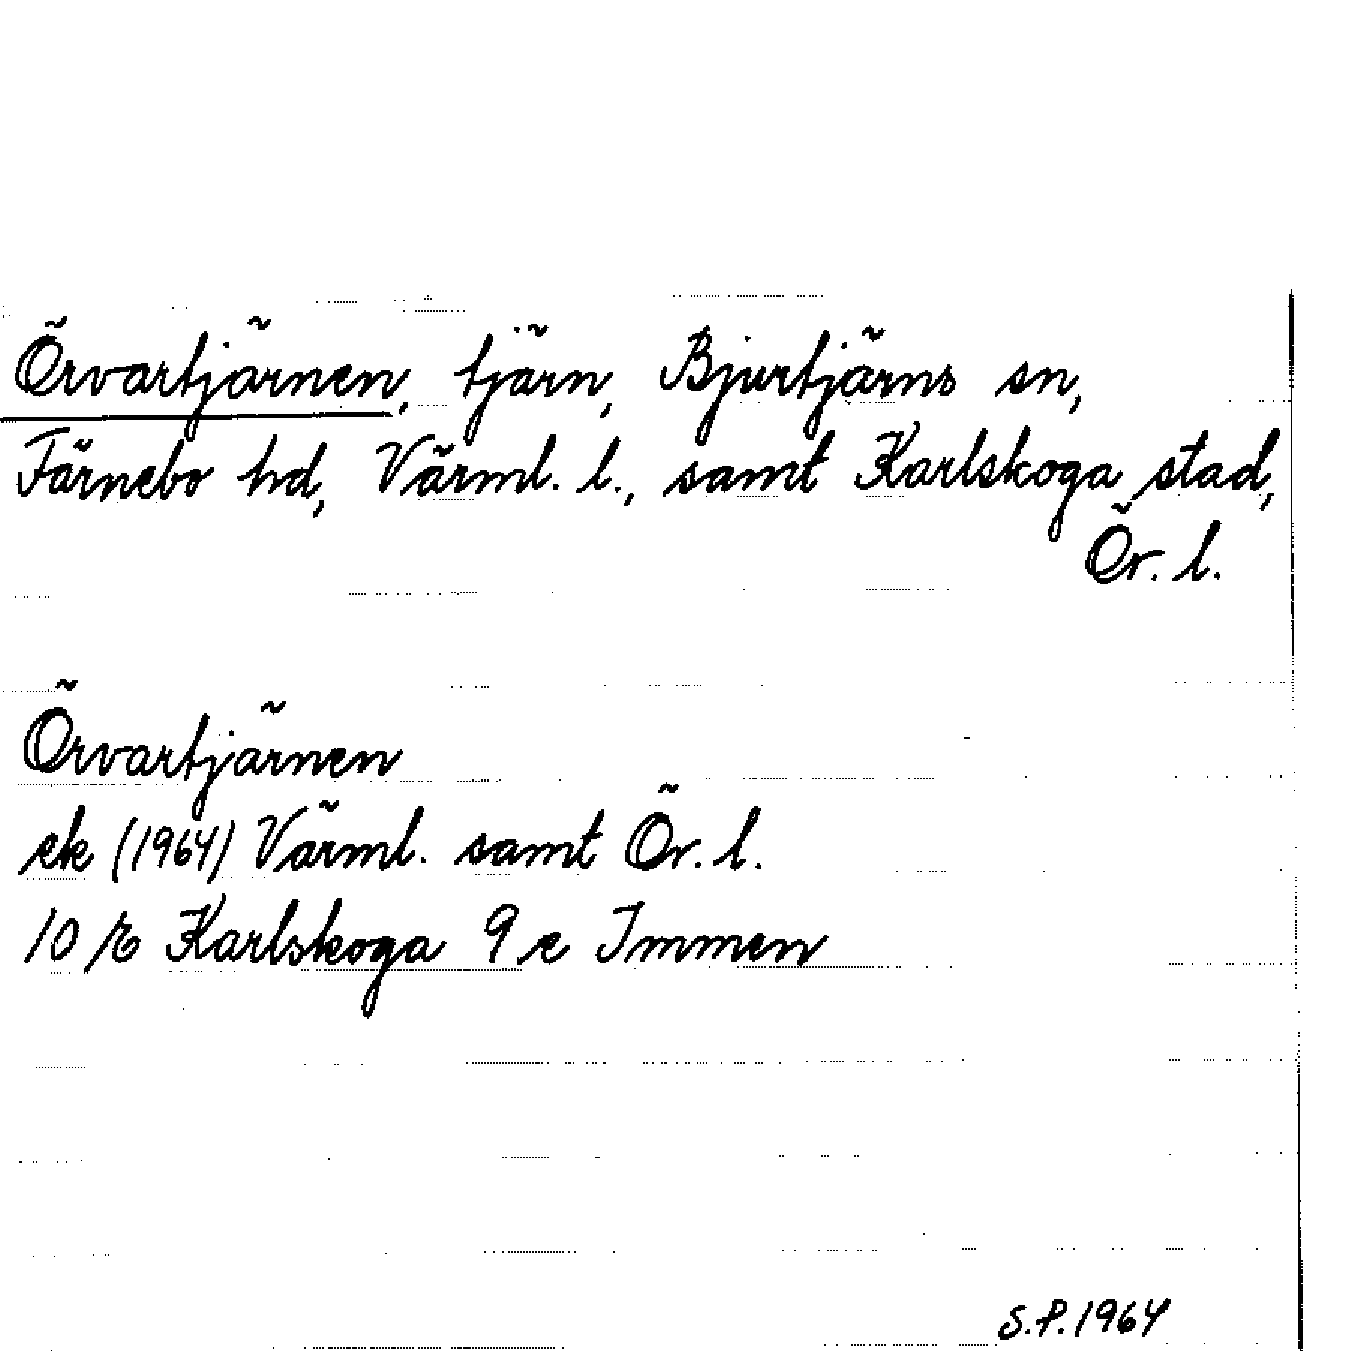 Örvartjärnen, tjärn, Bjurtjärns sn,
Färnebo hd, Värml. l., samt Karlskoga stad,
Ör. l.
Örvartjärnen
ek (1964) Värml. samt Ör. l.
10 E Karlskoga 9 e Immen
S.P. 1964